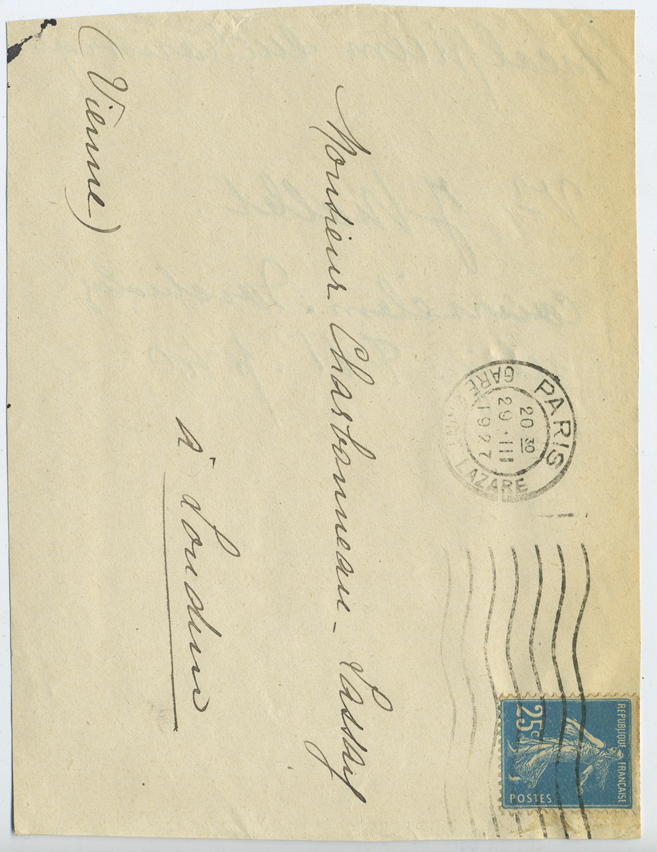 PARIS
20 30
29 · III
1927
GARE LAZARE
REPUBLIQUE FRANÇAISE
25c
POSTES
Monsieur Charbonneau-Lassay
à Loudun
(Vienne)